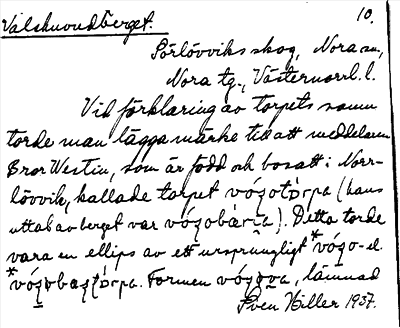 Valskuvudberget. 10.
Sörlövviks skog, Nora sn,
Nora tg., Västernorrl. l.
Vid förklaring av torpets namn
torde man lägga märke till att meddelaren
Bror Westin, som är född och bosatt i Norr-
lövvik, kallade torpet vózotɔrpa (hans
uttal av berget var vózobærɩa). Detta torde
vara en ellips av ett ursprungligt *vózo- el.
*vózobastɔrpa. Formen lämnad
Sven Hiller 1937.